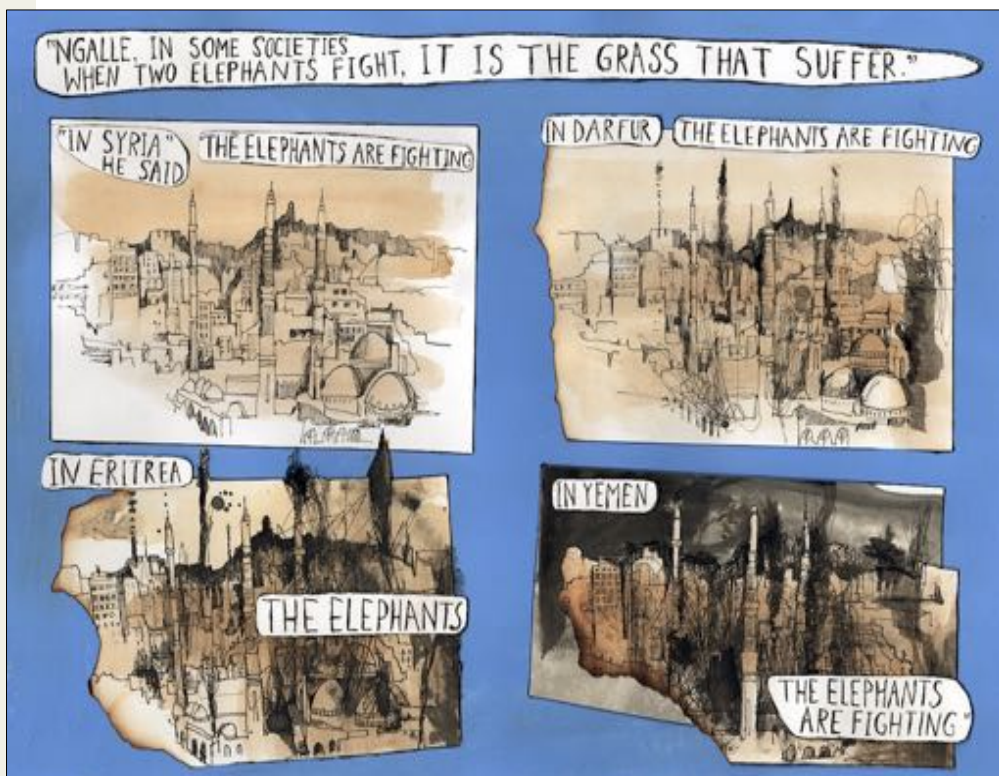 "NGALLE, IN SOME SOCIETIES
WHEN TWO ELEPHANTS FIGHT, IT IS THE GRASS THAT SUFFER."
"IN SYRIA"
HE SAID
"THE ELEPHANTS ARE FIGHTING
IN DARFUR
THE ELEPHANTS ARE FIGHTING
IN ERITREA
THE ELEPHANTS
IN YEMEN
THE ELEPHANTS
ARE FIGHTING"